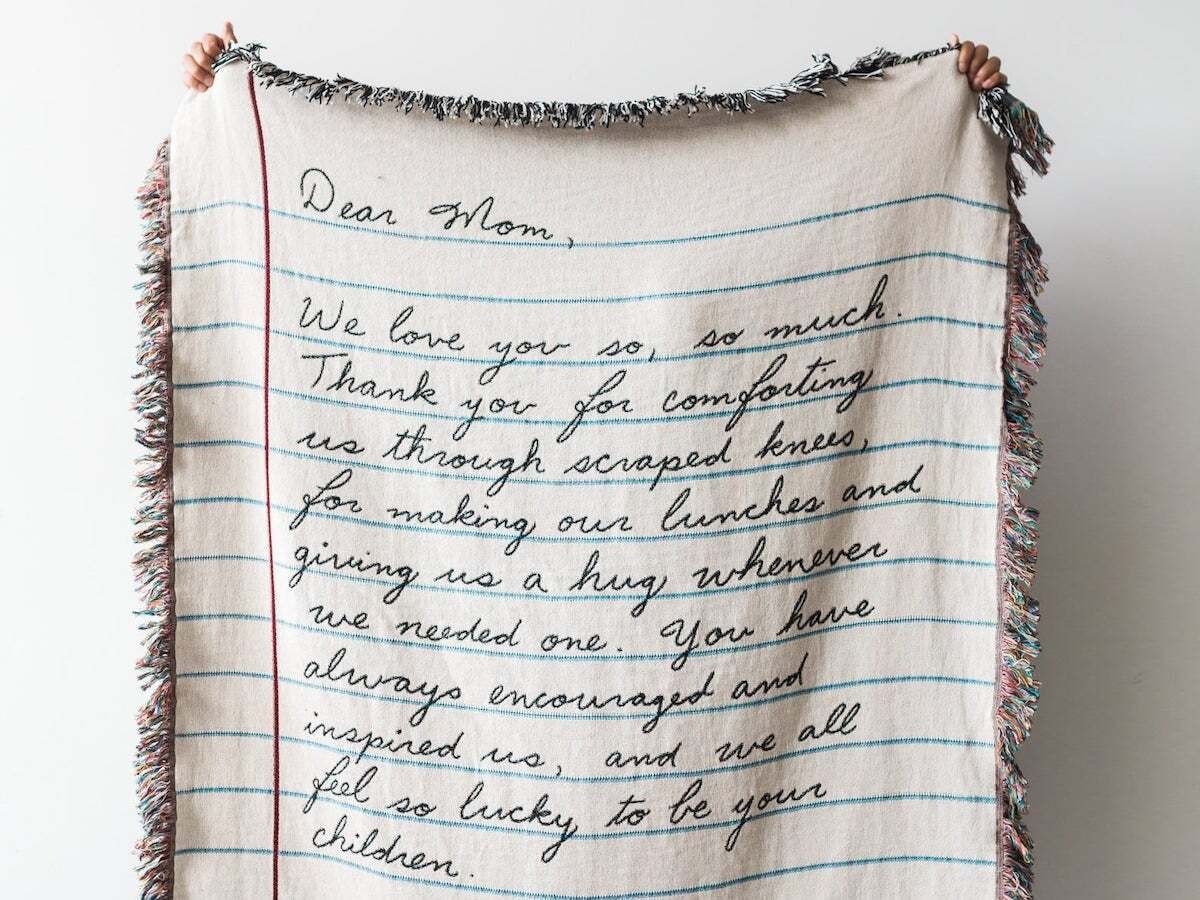 Dear Mom,
We love you so, so much.
Thank you for comforting
us through scraped knees,
for making our lunches and
giving us a hug whenever
we needed one. You have
always encouraged and
inspired us, and we all
feel so lucky to be your
children.